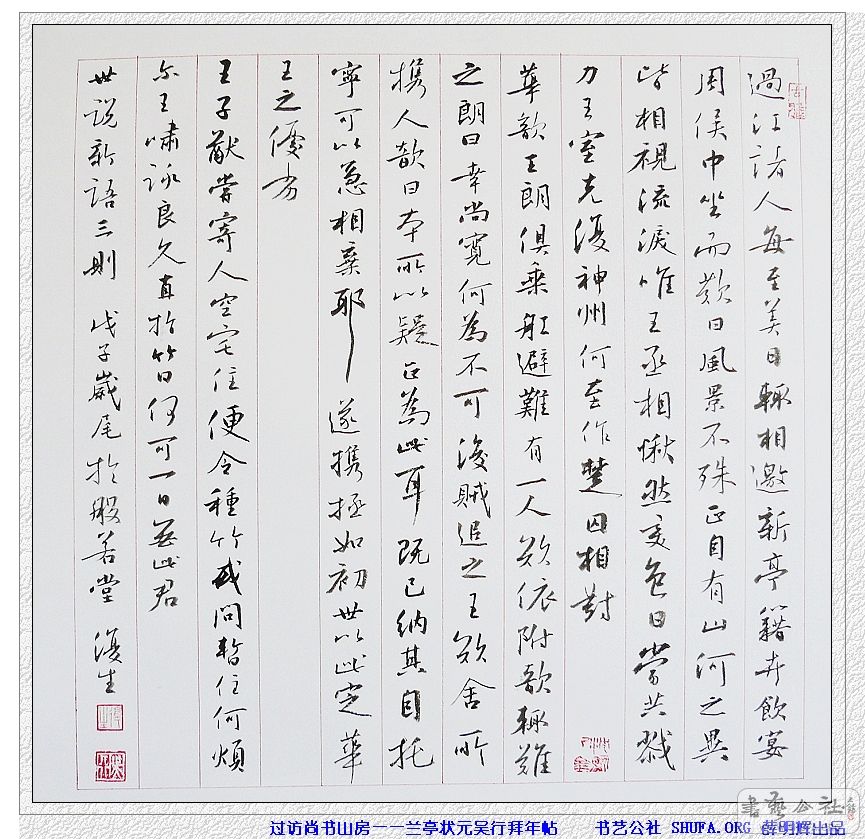 過江諸人每至美日輒相邀新亭籍卉飲宴
周侯中坐而歎曰風景不殊正自有山河之異
皆相視流淚唯王丞相愀然變色曰當共戮
力王室克復神州何至作楚囚相對
華歆王朗俱乘船避難有一人欲依附歆輒難
之朗曰幸尚寬何為不可後賊追之王欲舍所
攜人歆曰本所以疑正為此耳既已納其自托
寧可以急相棄耶遂攜拯如初世以此定華
王之優劣
王子猷嘗寄人空宅住便令種竹或問暫住何煩
尔王嘯詠良久直指竹曰何可一日無此君
世說新語三則 戊子歲尾於般若堂 復生
書藝公社
过访尚书山房——兰亭状元吴行拜年帖 书艺公社 SHUFA.ORG 薛明辉出品